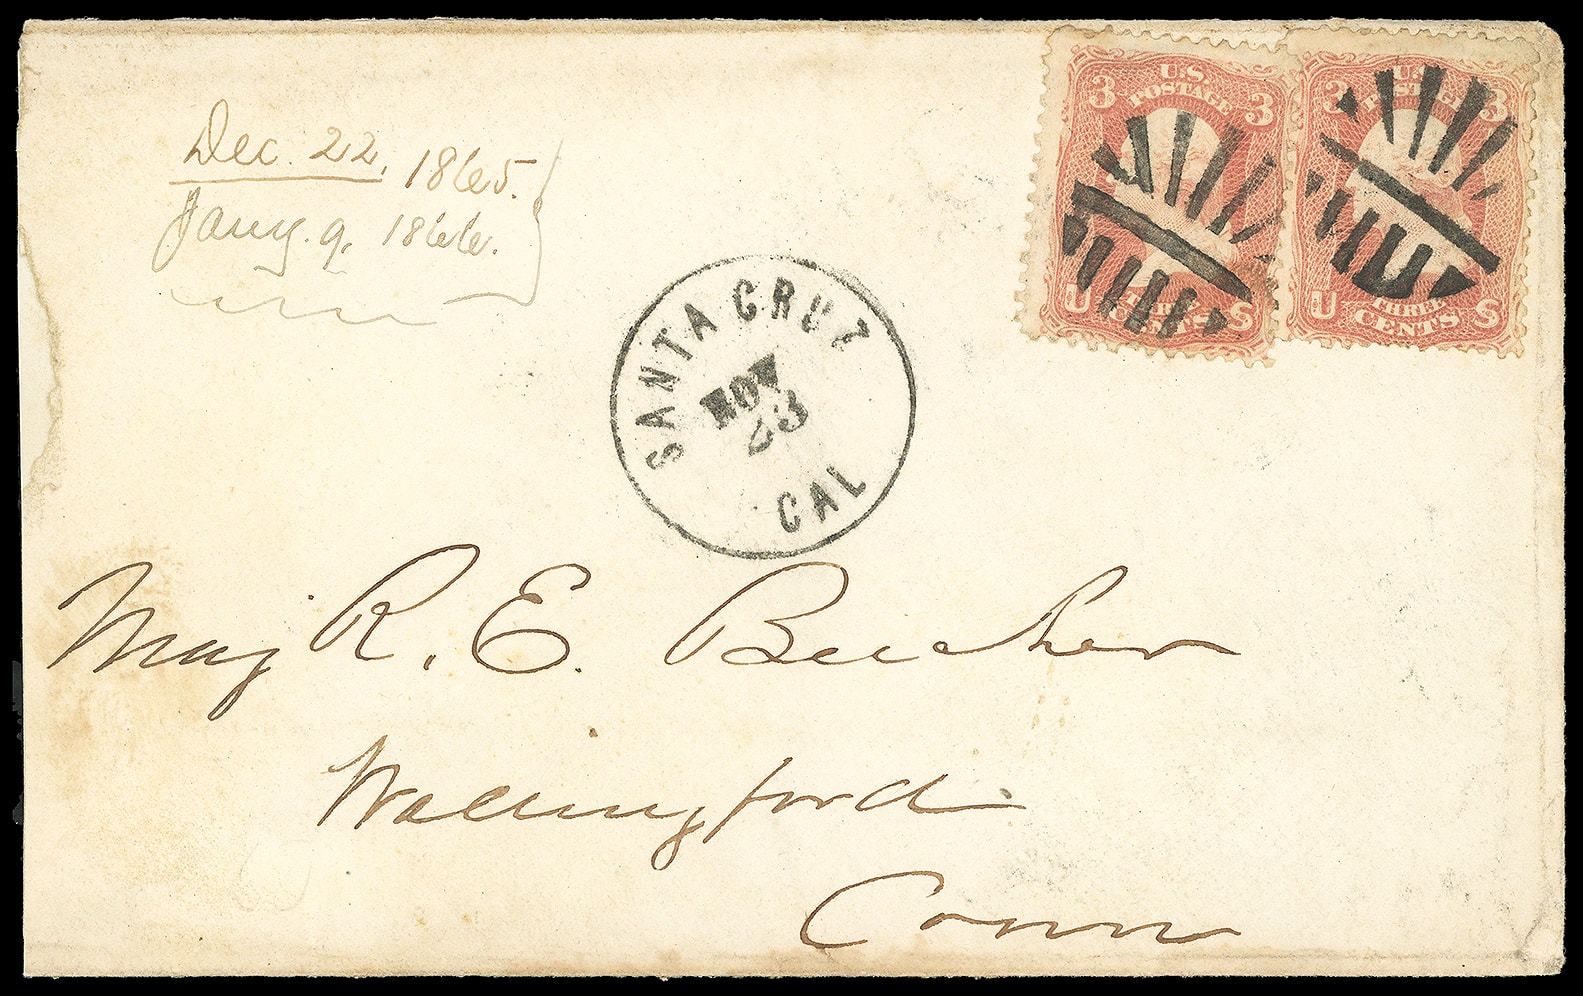 Dec. 22, 1865.
Jany. 9, 1866.
3 U.S. POSTAGE 3
U THREE CENTS S
3 U.S. POSTAGE 3
U THREE CENTS S
SANTA CRUZ
NOV
23
CAL
Maj R. E. Beecher
Wallingford
Conn